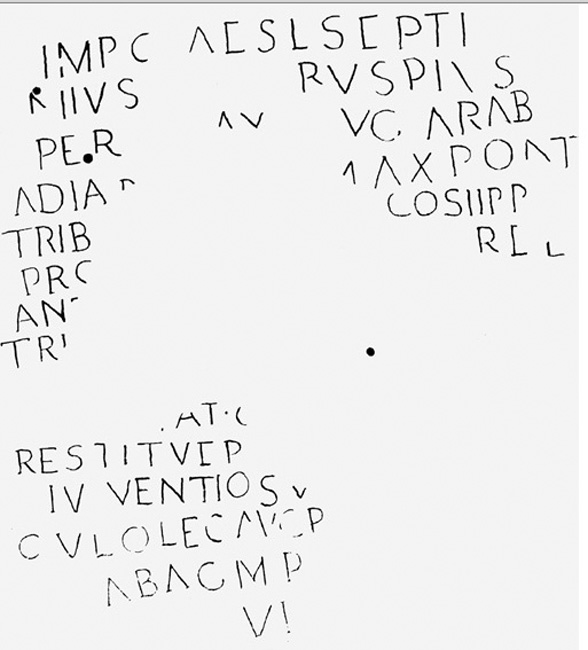 IMP C AESLSEPTI
RIIVS RVSPIVS
PE.R AV VC. ARAB
ADIA MAXPONT
TRIB COSIIPP
PRC REL
AN
TRI
.AT.C
RESTITVEP
IVVENTIOSV
CVLOLECAVGP
ABAGMP
VI